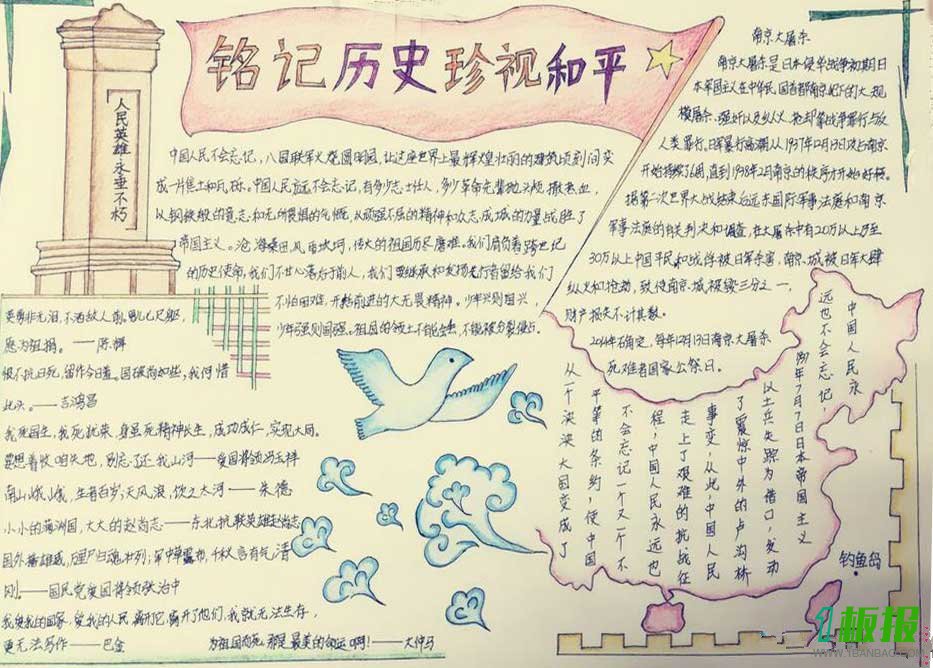 铭记历史珍视和平
人民英雄永垂不朽
中国人民不会忘记，八国联军火烧圆明园，让这座世界上最辉煌壮丽的建筑顷刻间变
成一片焦土和瓦砾。中国人民永远不会忘记，有多少志士仁人，多少革命先辈抛头颅、撒热血，
以钢铁般的意志，和无所畏惧的气慨，从顽强不屈的精神和众志成城的力量战胜了
帝国主义。沧海桑田，风雨坎坷，伟大的祖国历尽磨难。我们肩负着跨世纪
的历史使命，我们不甘心落后于前人，我们要继承和发扬先行者留给我们
不怕困难，开拓前进的大无畏精神。少年兴则国兴，
少年强则国强。祖国的领土不能
南京大屠杀
南京大屠杀是日本侵华战争初期日
本军国主义在中华民国首都南京犯下的大规
模屠杀、强奸以及纵火、抢劫等战争罪行与反
人类罪行。日军暴行高潮从1937年12月13日攻占南京
开始持续了6周，直到1938年2月南京的秩序才开始好转。
据第二次世界大战结束后远东国际军事法庭和南京
军事法庭的有关判决和调查，在大屠杀中有20万以上乃至
30万以上中国平民和战俘被日军杀害，南京城被日军大肆
纵火和抢劫，致使南京城被毁三分之一，
财产损失不计其数。
2014年 确定，每年12月13日南京大屠杀
死难者国家公祭日。
英勇非无泪，不洒敌人前。男儿七尺躯，
愿为祖捐。——陈辉
恨不抗日死，留作今日羞。国破尚如此，我何惜
此头。——吉鸿昌
我死国生，我死犹荣，身虽死精神长生，成功成仁，实现大同。
要想着收咱失地，别忘了还我山河——爱国将领冯玉祥
南山峨峨，生者百岁；天风浪，饮之太河——朱德
小小的满洲国，大大的赵尚志——东北抗联英雄赵尚志
刚。——国民党爱国将领张治中
我爱我的国家，爱我的人民，离开它，离开了他们，我就无法生存，
更无法写作——巴金
为祖国而死，那是最美的命运啊！——大仲马
中国人民永
远也不会忘记，
1937年7月7日日本帝国主义
以士兵失踪为借口，发动
了震惊中外的卢沟桥
事变，从此，中国人民
走上了艰难的抗战征
程；中国人民永远也
不会忘记一个又一个不
平等的条约，使中国
从一个泱泱大国变成了
钓鱼岛
1板报
WWW.1BANBAO.COM